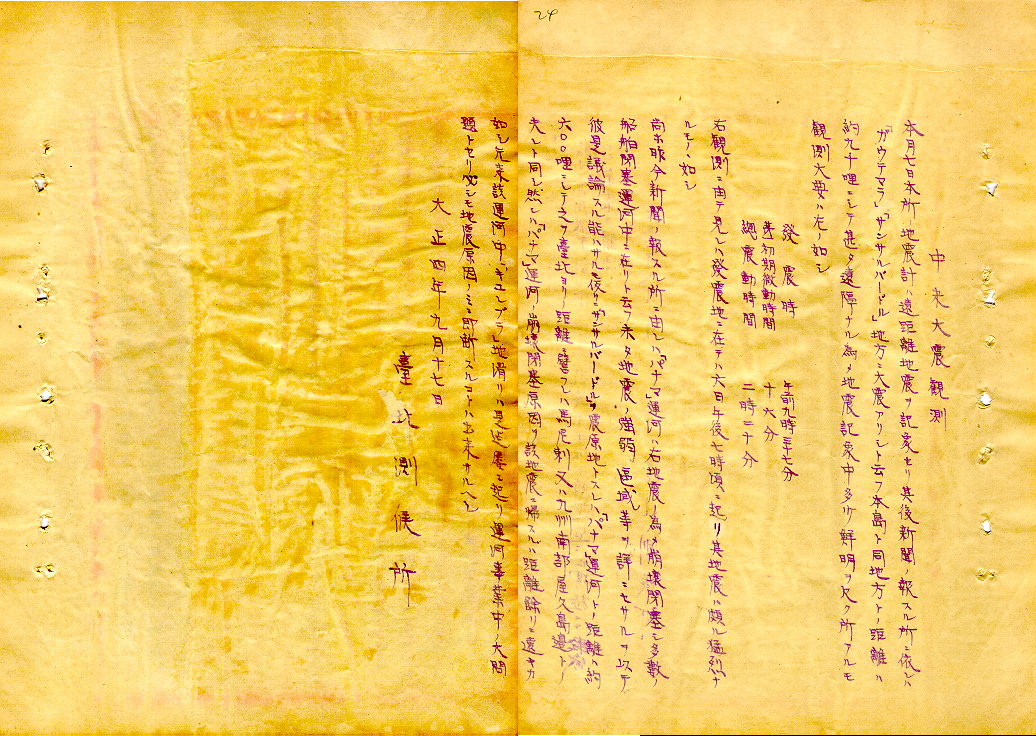 24
中米大震観測
本月七日本所地震計ハ遠距離地震ヲ記象セリ其後新聞ノ報スル所ニ依レハ
「ガウテマラ」「サンサルバードル」地方ニ大震アリシト云フ本島ト同地方トノ距離ハ
約九千哩ニシテ甚タ遠隔ナル為メ地震記象中多少鮮明ヲ欠ク所アルモ
観測大要ハ左ノ如シ
發震時 午前九時三十七分
初期微動時間 十六分
總震動時間 二時二十分
右観測ニ由テ見レハ發震地ニ在テハ六日午後七時頃ニ起リ其地震ハ頗ル猛烈ナ
ルモノヽ如シ
尚ホ昨今新聞ノ報スル所ニ由レハ「パナマ」運河ハ右地震ノ為メ崩壊閉塞シ多数ノ
船舶閉塞運河中ニ在リト云フ未タ地震ノ強弱ノ區域等ヲ詳ニセサルヲ以テ
彼是議論スル能ハサルモ仮リニ「サンサルバードル」ヲ震原地トスレハ「パナマ」運河トノ距離ハ約
六〇〇哩ニシテ之ヲ臺北ヨリノ距離ニ譬フレハ馬尼剌又ハ九州南部屋久島邊トノ
夫レト同シ然レハ「パナマ」運河ノ崩壊閉塞原因ヲ該地震ニ帰スルハ距離餘リニ遠キカ
如シ元来該運河中「キユレブラ」地滑リハ是迄屡々起リ運河事業中ノ大問
題トセリ必シモ地震原因ノミニ即断スルコトハ出来サルヘシ
大正四年九月十七日
臺北測候所